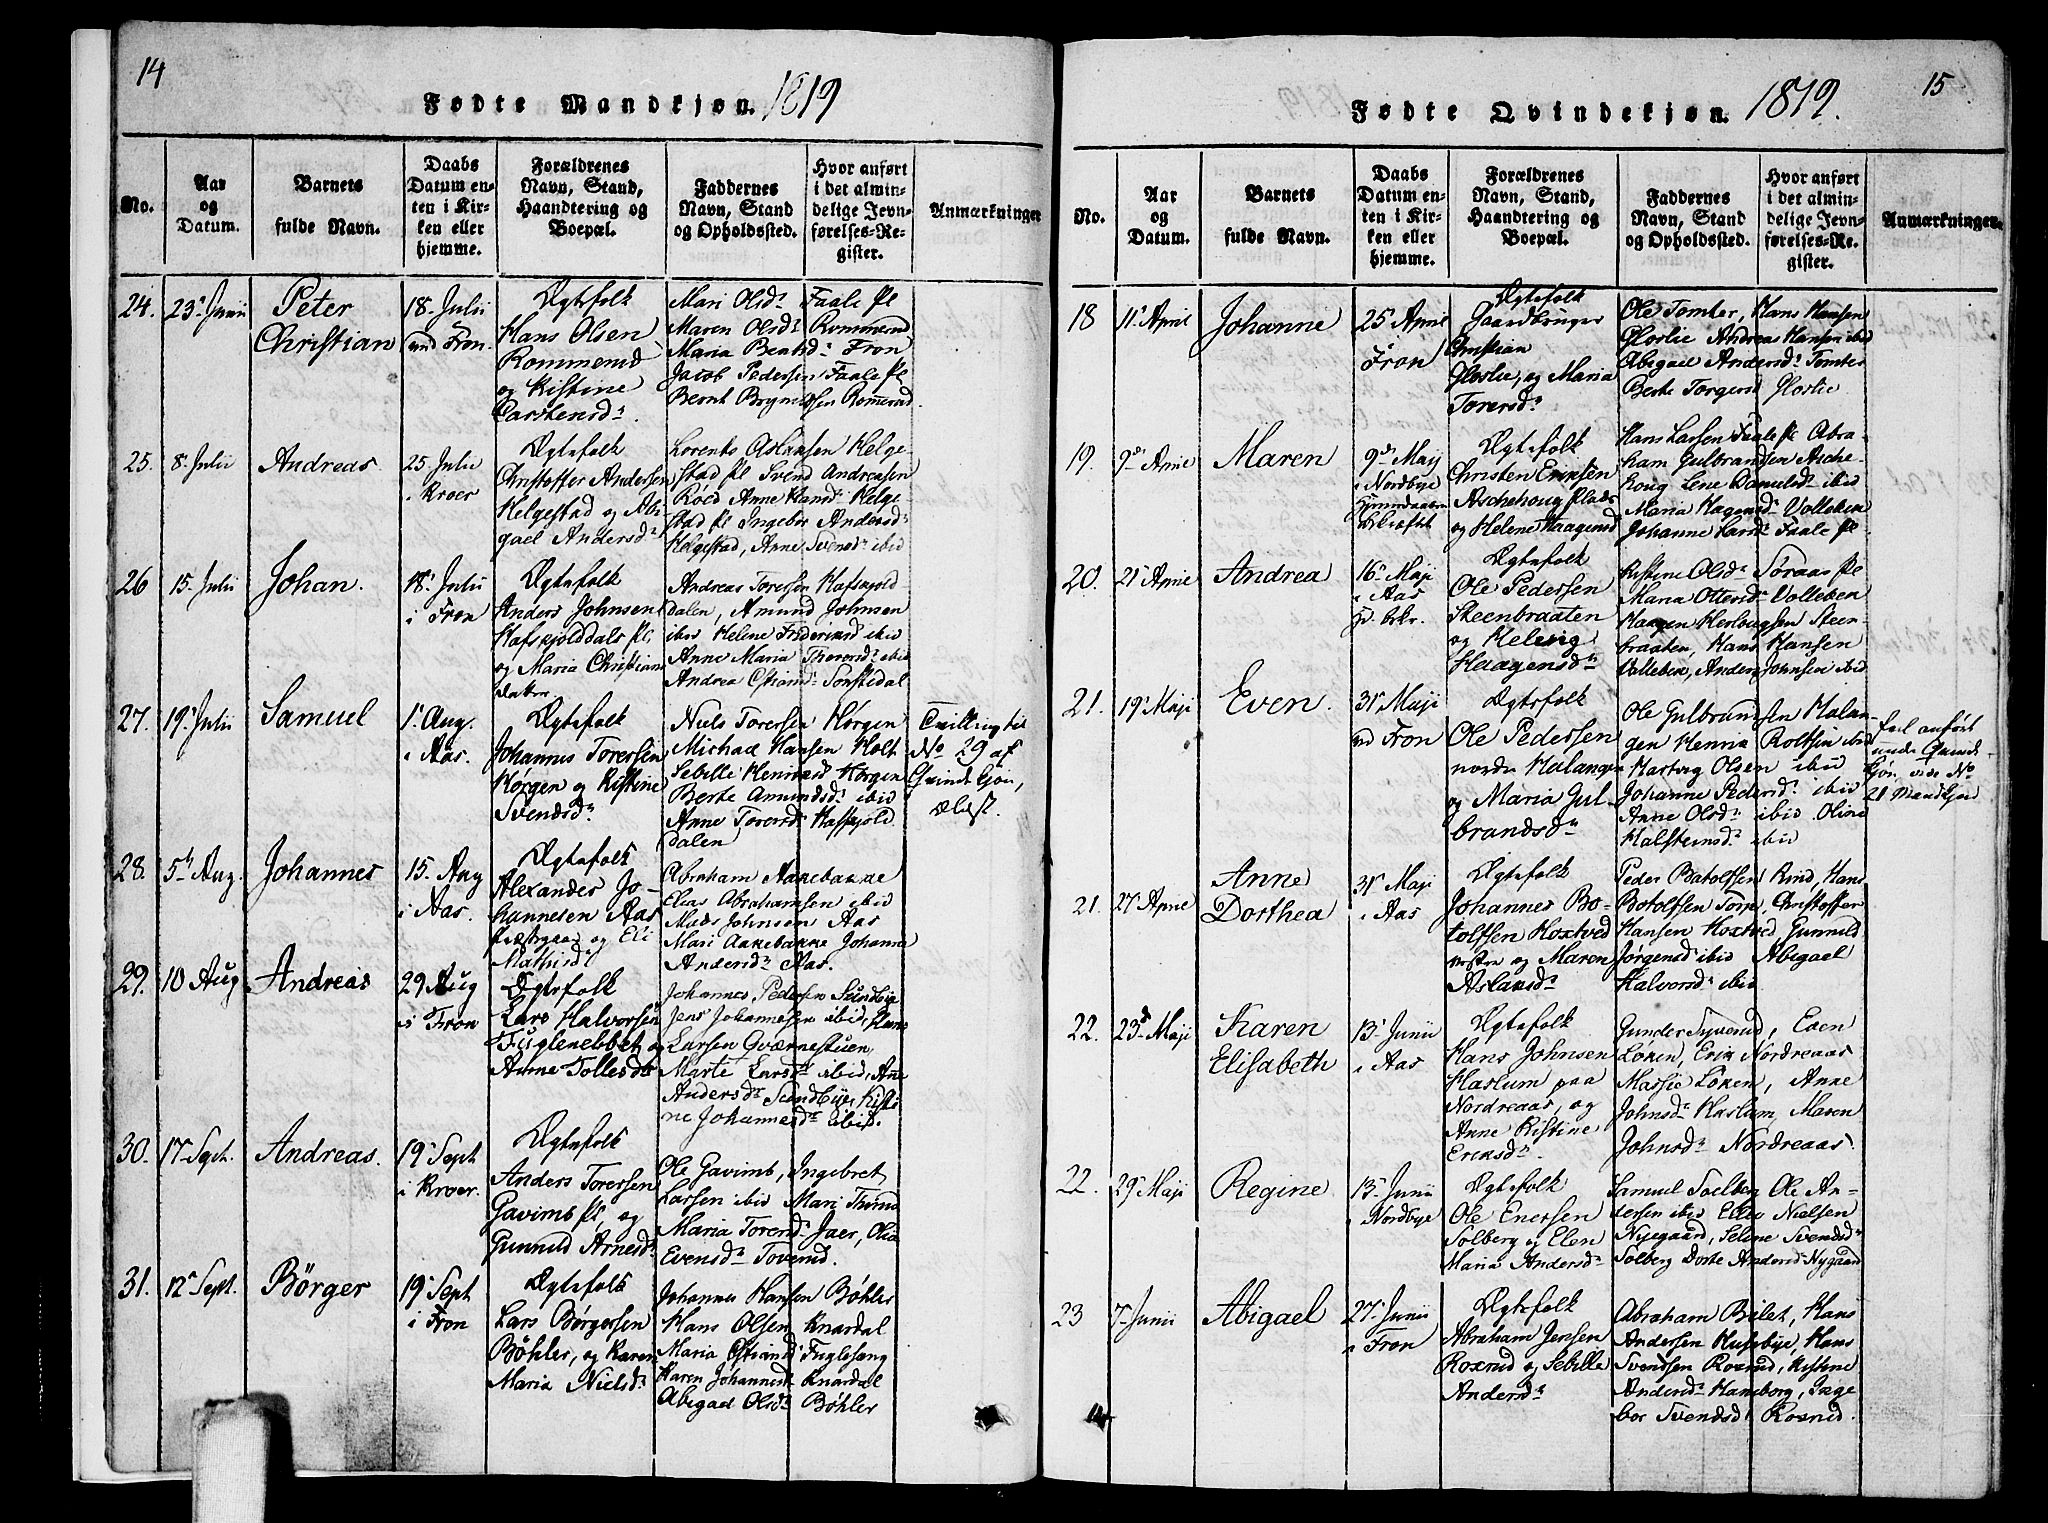 14
Fødte Mandkjøn. 1819
No.
Aar
og
Datum.
Barnets
fulde Navn.
Daabs
Datum en-
ten i Kir-
ken eller
hjemme.
Forældrenes
Navn, Stand,
Haandtering og
Boepæl.
Faddernes
Navn, Stand
og Opholdssted.
Hvor anført
i det almin-
delige Jevn-
førelses-Re-
gister.
Anmærkninger
24.
23 Junii
Peter
Christian
18 Julii
ved Fron.
Ægtefolk
Hans Olsen
Rommerud
og Kistine
Carstensdr
Mari Olsdr Faale Pl
Maren Olsdr Rommerud
Maria Berntsdr Fron
Jacob Pedersen Faale Pl
Bernt Brynildsen Romerud
25.
8 Julii
Andreas
25 Julii
i Kroer
Ægtefolk
Christoffer Andersen
Helgestad og Abi-
gael Andersdr
Lorents Aslaksen Helge-
stad Pl Svend Andreasen
Røed Anne Hansdr Helge-
stad Pl Ingebor Andersdr
Helgestad, Anne Svensdr ibid
26
15 Julii
Johan.
18 Julii
i Fron
Ægtefolk
Anders Johnsen
Hafskjolddals Pl,
og Maria Christians
datter
Andreas Toresen Hafskjold
dalen, Amund Johnsen
ibid Helene Frideriksd ibid
Anne Maria Thorersdr ibid
Andrea Christiansdr
27.
19 Julii
Samuel
1 Aug.
i Aas.
Ægtefolk
Johannes Torersen
Hørgen og Kistine
Svendsdr
Niels Torersen Hørgen
Michael Hansen Holt
Sebille Henriksd Hørgen
Berte Amundsdr ibid
Anne Torersd Hafskjold
dalen
Tvilling til
No 29 af
Qvindekjøn,
ælest.
28.
5te Aug.
Johannes
15 Aug
i Aas.
Ægtefolk
Alexander Jo-
hannesen Aas
Præstegaard og Eli
Mathisdr
Abraham Aakebakke
Elias Abrahamsen ibid
Mads Johnsen Aas
Mari Aakebakke Johanne
Andersdr Aas.
29.
10 Aug
Andreas
29 Aug
i Fron
Ægtefolk
Lars Halvorsen
Fuglenebbet og
Anne Tollesdr
Johannes Pedersen Sundbye
Jens Johannesen ibid, Hans
Larsen Qværnestuen,
Marte Larsdr ibid, Anne
Andersdr Sundbye, Kisti
ne Johannesdr ibid.
30.
17 Sept.
Andreas.
19 Sept
i Kroer.
Ægtefolk
Anders Torersen
Gavimb Pl, og
Gunnild Arnesdr
Ole Gavimb, Ingebret
Larsen ibid Mari Thømd
Maria Torersd Jaer, Olia
Evensdr Toverud.
31.
12 Sept.
Börger
19 Sept
i Fron
Ægtefolk
Lars Børgersen
Bøhler, og Karen
Maria Nielsdr
Johannes Hansen Bøhler
Hans Olsen Knardal
Maria Christiansd Fuglesang
Karen Johannesdr Knardal
Abigael Olsdr Bøhler
15
Fødte Qvindekjøn. 1819.
No.
Aar
og
Datum.
Barnets
fulde Navn.
Daabs
Datum en-
ten i Kir-
ken eller
hjemme.
Forældrenes
Navn, Stand,
Haandtering og
Boepæl.
Faddernes
Navn, Stand
og Opholdssted.
Hvor anført
i det almin-
delige Jevn-
førelses-Re-
gister.
Anmærkninger.
18
11 April
Johanne
25 April
Fron
Ægtefolk
Gaardbruger
Christian
Gloslie, og Maria
Torersdr
Ole Tomter, Hans Hansen
Gloslie Andreas Hansen ibid
Abigael Andersdr Tomter
Berte Torgersd Gloslie
19.
9de April
Maren
9de Maij
i Nordbye
Ægtefolk
Christen Eriksen
Aschehoug Plads
og Helene Haagensd
Hans Larsen Faale Pl Abra-
ham Gulbrandsen Asche-
houg Lene Danielsdr ibid
Maria Hagensdr Volleben
Johanne Larsdr Faale Pl.
20.
21 April
Andrea
16 Maji
i Aas
Ægtefolk
Ole Pedersen
Steenbraaten
og Helvig
Haagensdr
Kistine Olsdr Søraas Pl
Maria Ottersdr Volleben
Haagen Herlougsen Steen-
braaten, Hans Hansen
Volleben, Anders Johnsen ibid
21.
19 Maji
Even.
31 Maji
ved Fron
Ægtefolk
Ole Pedersen
nordre Halangen
og Maria Gul-
brandsdr
Ole Gulbrandsen Halan-
gen Henric Rolfsen ibid
Hartvig Olsen ibid
Johanne Pedersdr ibid
Anne Olsdr ibid Oline
Halsteensdr ibid
feil anført
under Qvinde
kjøn vide No
21 Mandkjød
21.
27 April
Anne
Dorthea
31 Maji
i Aas
Ægtefolk
Johannes Bo-
tolfsen Hoxtved
vestre og Maren
Aslaksdr
Peder Botolfsen Rud, Hans
Botolfsen Torp, Christoffer
Hansen Hoxtved Gunnild
Jørgensd ibid Abigael
Halvorsdr ibid.
22.
23d Maji
Karen
Elisabeth
13 Junii
i Aas
Ægtefolk
Hans Johnsen
Haslum paa
Nordreaas, og
Anne Kistine
Eriksdr
Gunder Syverud, Even
Løken, Erik Nordreaas
Massie Løken, Anne
Johnsdr Haslum, Maren
Johnsdr Nordreaas.
22.
29 Maji
Regine
13 Junii
i Nordbye
Ægtefolk
Ole Enersen
Solberg og Elen
Maria Andersdr
Samuel Soelberg Ole An-
dersen ibid Ellev Nielsen
Nygaard, Seline Svendsdr
Solberg Dorte Andersd Nygaard
23
7 Junii
Abigael
27 Junii
i Fron
Ægtefolk
Abraham Jensen
Roxrud og Sebille
Andersdr
Abraham Bilet, Hans
Andersen Husebye, Hans
Svendsen Roxrud, Kistine
Andersdr Haneborg, Inge
bor Svendsd Roxrud.